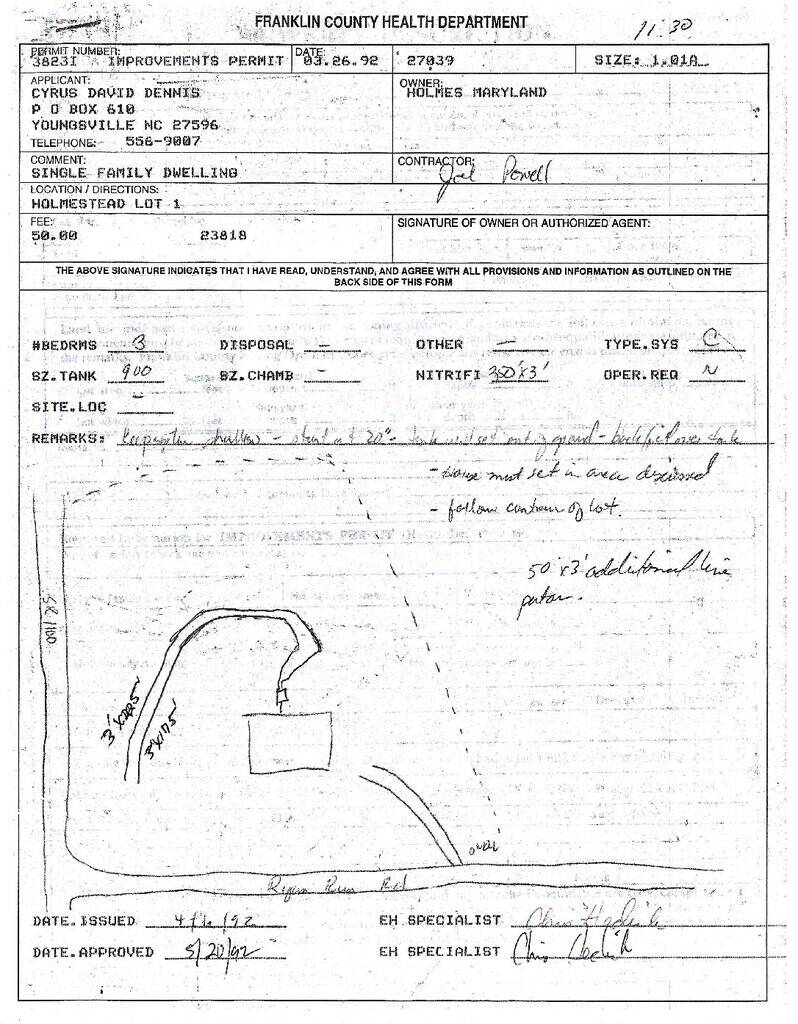 FRANKLIN COUNTY HEALTH DEPARTMENT
11:30
PERMIT NUMBER: DATE:
3823I A IMPROVEMENTS PERMIT 03.26.92 27039 SIZE: 1.01A
APPLICANT: OWNER:
CYRUS DAVID DENNIS HOLMES MARYLAND
P O BOX 610
YOUNGSVILLE NC 27596
TELEPHONE: 556-9007
COMMENT: CONTRACTOR:
SINGLE FAMILY DWELLING Joel Powell
LOCATION / DIRECTIONS:
HOLMESTEAD LOT 1
FEE: SIGNATURE OF OWNER OR AUTHORIZED AGENT:
50.00 23818
THE ABOVE SIGNATURE INDICATES THAT I HAVE READ, UNDERSTAND, AND AGREE WITH ALL PROVISIONS AND INFORMATION AS OUTLINED ON THE
BACK SIDE OF THIS FORM
#BEDRMS 3 DISPOSAL - OTHER - TYPE.SYS C
SZ.TANK 900 SZ.CHAMB - NITRIFI 350'X3' OPER.REQ N
SITE.LOC -
REMARKS: Keep system shallow - start at 20" - tank must set out of ground - backfill over tank
- house must set in area discussed
- follow contour of lot.
50'x3' additional line
SR 1100
3'X175'
Run Rd
DATE.ISSUED 92 EH SPECIALIST
DATE.APPROVED 5/20/92 EH SPECIALIST Chris